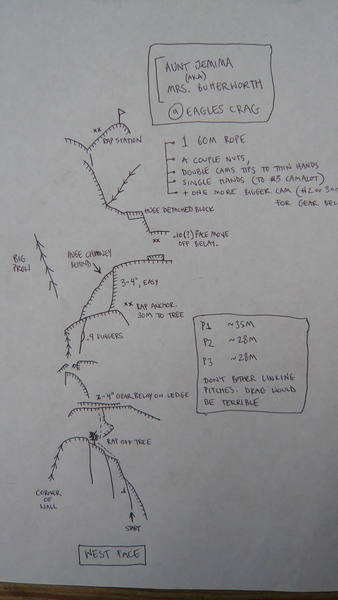 AUNT JEMIMA
(AKA)
MRS. BUTTERWORTH
@ EAGLES CRAG
xx
RAP STATION
1 60M ROPE
A COUPLE NUTS,
DOUBLE CAMS TIPS TO THIN HANDS
SINGLE HANDS (TO #.5 CAMALOT)
+ ONE MORE BIGGER CAM (#2 OR
FOR GEAR
HUGE DETACHED BLOCK
.10(?) FACE MOVE
OFF BELAY.
xx
BIG
PROW
HUGE CHIMNEY
BEHIND
3-4", EASY
xx RAP ANCHOR.
30M TO TREE
.9 FINGERS
P1 ~35M
P2 ~28M
P3 ~28M
DON'T BOTHER LINKING
PITCHES. DRAG WOULD
BE TERRIBLE
2-4" GEAR BELAY ON LEDGE
RAP OFF TREE
CORNER
OF
WALL
START
WEST FACE